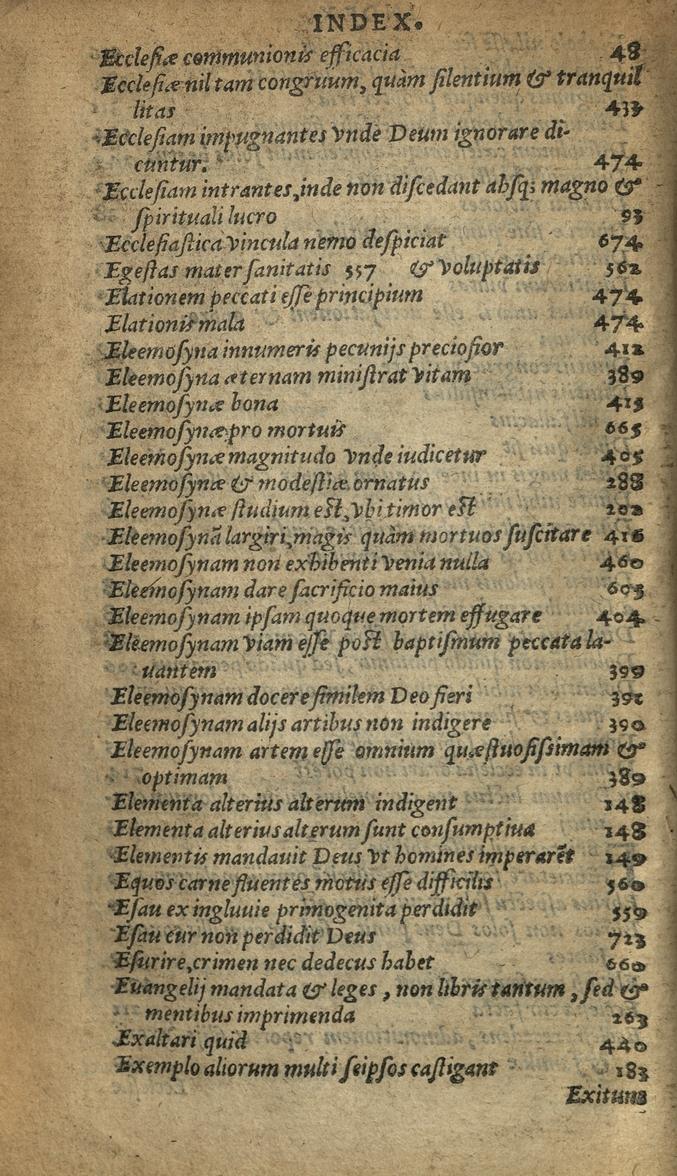 INDEX.
Ecclesiæ communionis efficacia 48
Ecclesiæ nil tam congruum, quàm silentium & tranquil
litas 433
Ecclesiam impugnantes vnde Deum ignorare di-
cuntur. 474
Ecclesiam intrantes, inde non discedant absq; magno &
spirituali lucro 93
Ecclesiastica vincula nemo despiciat 674
Egestas mater sanitatis 557 & voluptatis 562
Elationem peccati esse principium 474
Elationis mala 474
Eleemosyna innumeris pecunijs preciosior 412
Eleemosyna æternam ministrat vitam 389
Eleemosynæ bona 415
Eleemosynæ pro mortuis 665
Eleemosynæ magnitudo vnde iudicetur 405
Eleemosynæ & modestiæ ornatus 288
Eleemosynæ studium est, vbi timor est 202
Eleemosynã largiri, magis quàm mortuos suscitare 416
Eleemosynam non exhibenti venia nulla 460
Eleemosynam dare sacrificio maius 605
Eleemosynam ipsam quoque mortem effugare 404
Eleemosynam viam esse post baptismum peccata la-
uantem 399
Eleemosynam docere similem Deo fieri 391
Eleemosynam alijs artibus non indigere 390
Eleemosynam artem esse omnium quæstuosissimam &
optimam 389
Elementa alterius alterum indigent 148
Elementa alterius alterum sunt consumptiua 148
Elementis mandauit Deus vt homines imperarẽt 149
Equos carne fluentes motus esse difficilis 560
Esau ex ingluuie primogenita perdidit 559
Esau cur non perdidit Deus 723
Esurire, crimen nec dedecus habet 660
Euangelij mandata & leges, non libris tantum, sed &
mentibus imprimenda 263
Exaltari quid 440
Exemplo aliorum multi seipsos castigant 183
Exitum